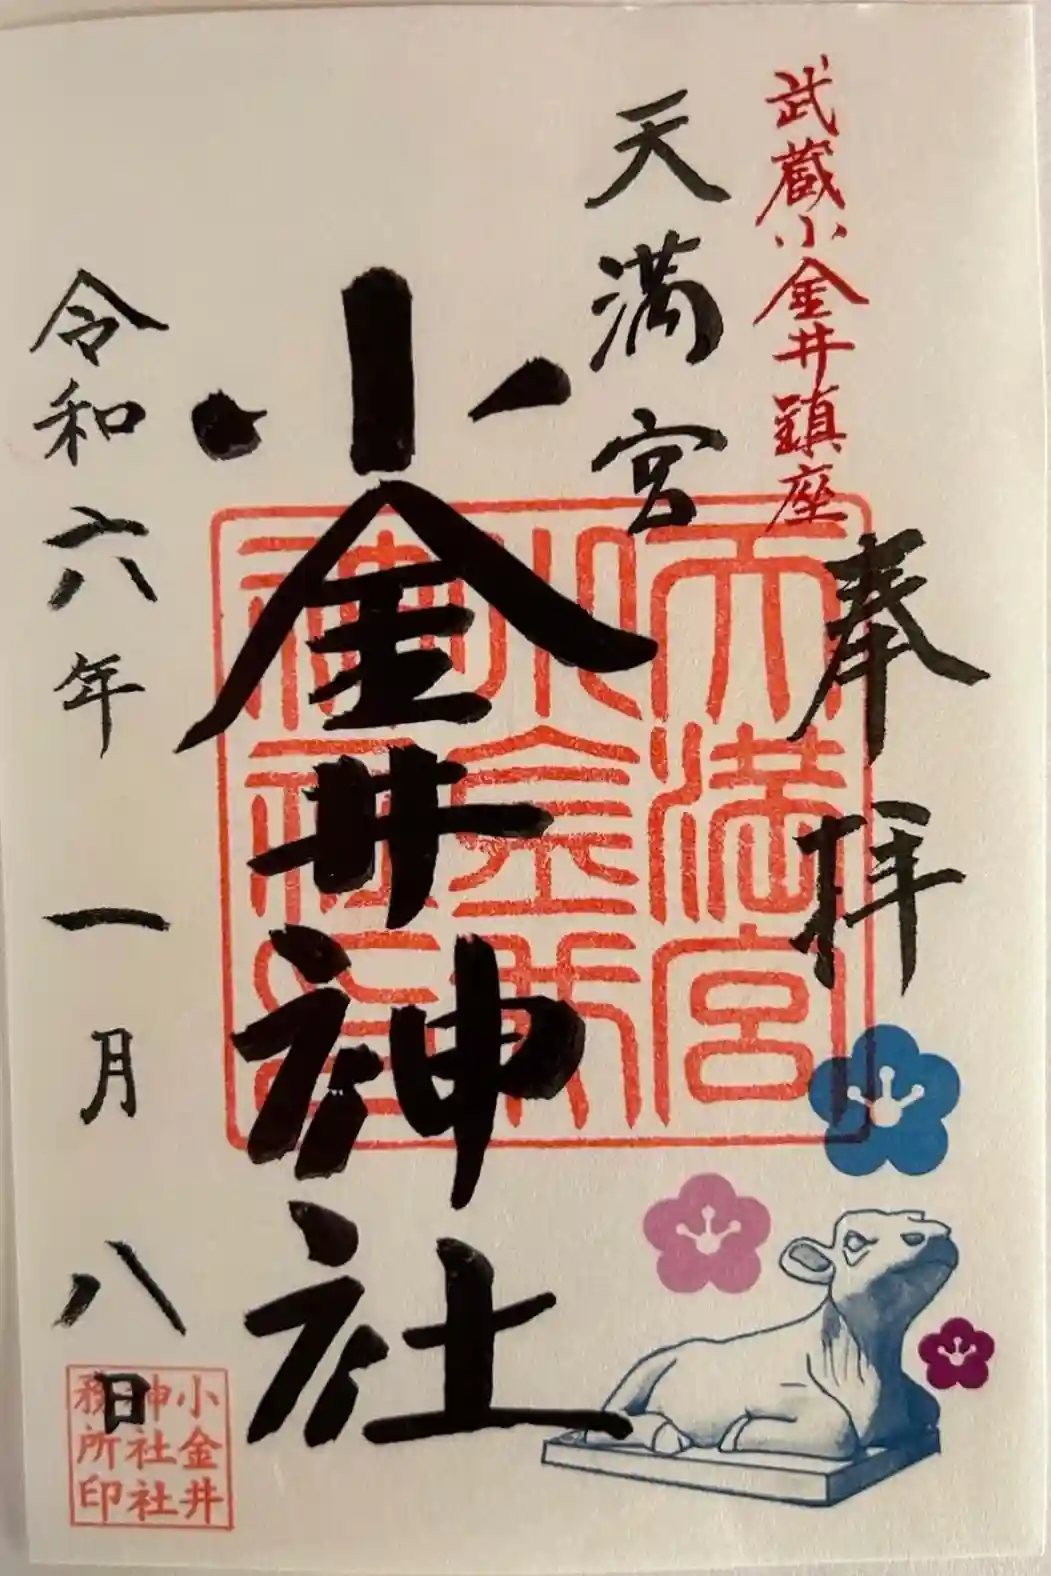 武蔵小金井鎮座
奉拝
天満宮
小金井神社
令和六年一月八日
天満宮
小金井
神社印
小金井
神社社
務所印